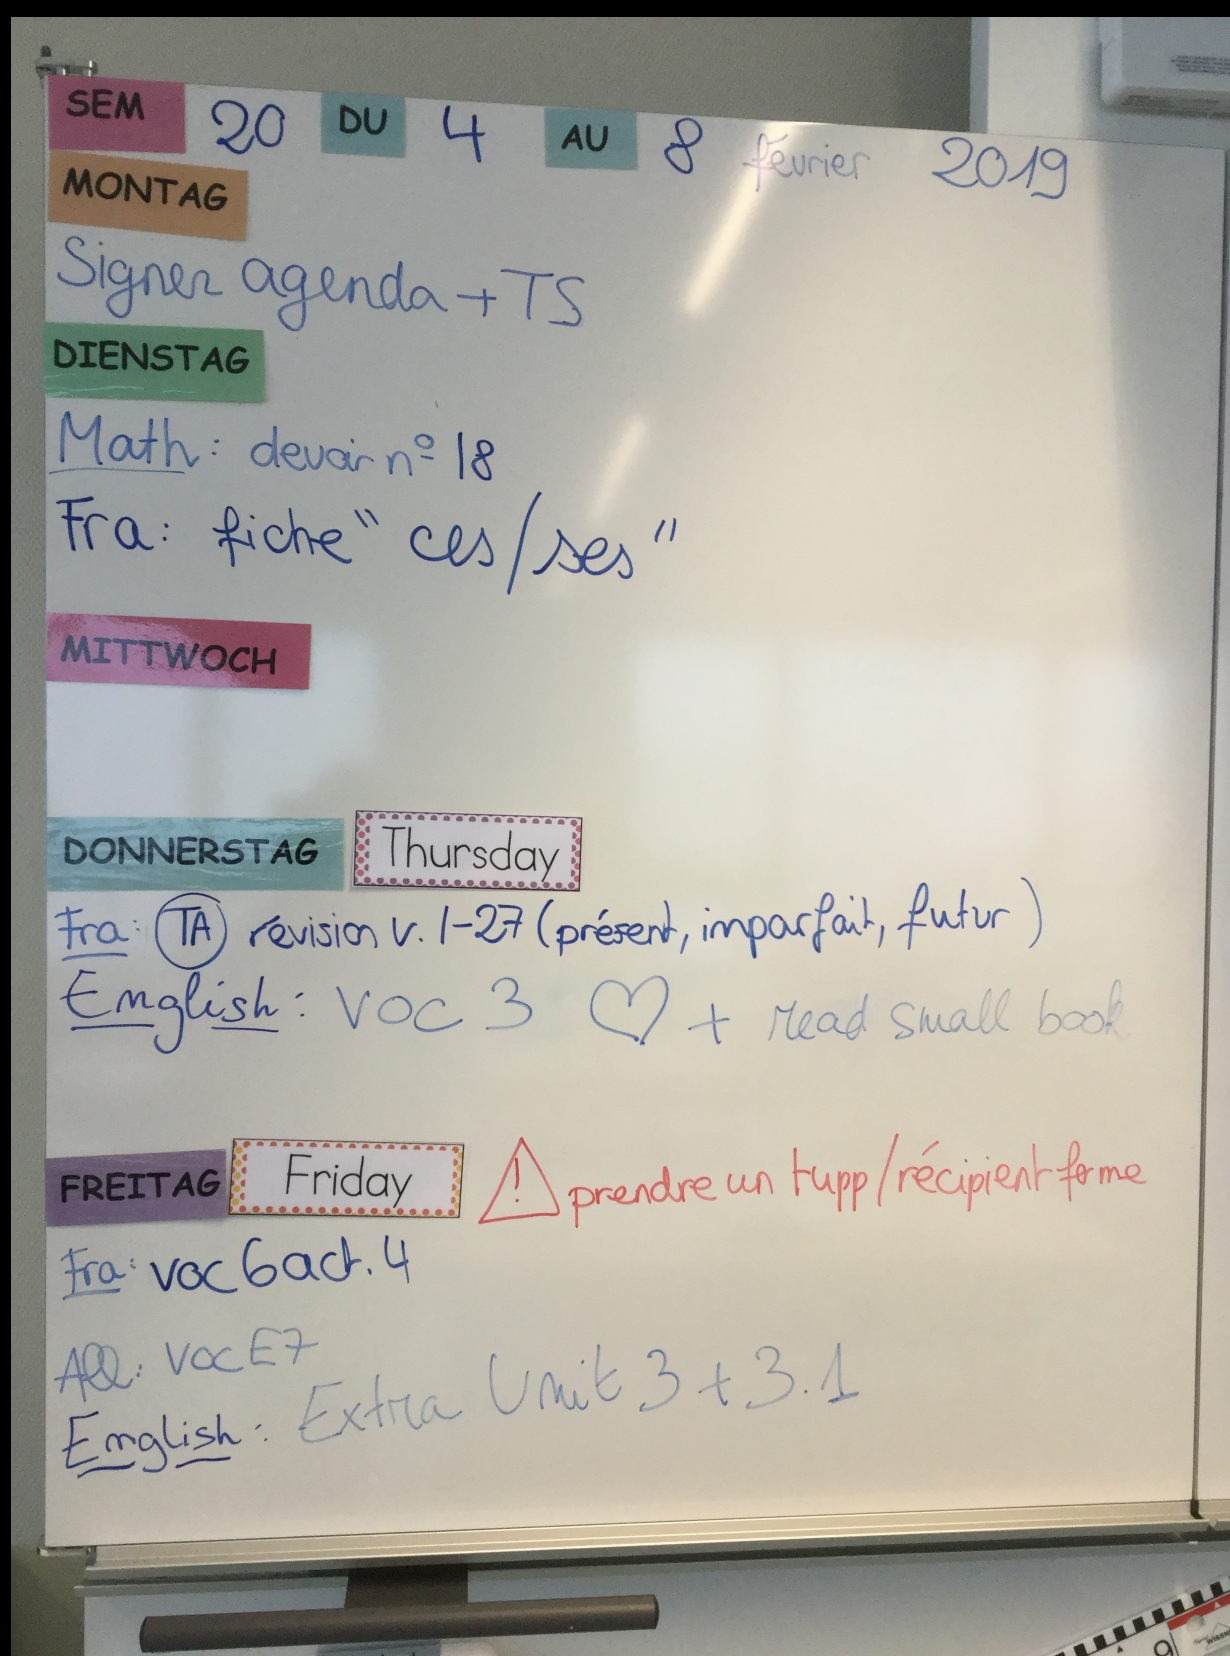 SEM 20 DU 4 AU 8 février 2019
MONTAG
Signer agenda + TS
DIENSTAG
Math: devoir n° 18
Fra: fiche "ces/ses"
MITTWOCH
DONNERSTAG Thursday
Fra: TA révision v. 1-27 (présent, imparfait, futur)
English: voc 3 ♡ + read small book
FREITAG Friday ! prendre un tupp/récipient
Fra: voc 6 act. 4
All: voc E7
English: Extra Unit 3 + 3.1
9